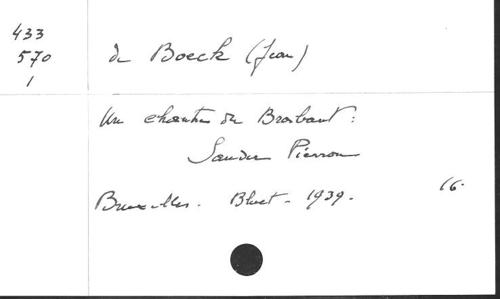 433
570
1
de Boeck (Jean)
Un chantre du Brabant :
Sander Pierron
Bruxelles. Bluet - 1939.
16.